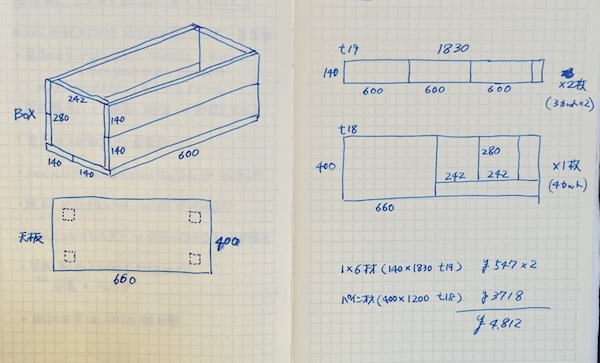 BOX
242
280
140
140
140
140
600
天板
400
660
t19
1830
140
600
600
600
×2枚
(3カット×2)
t18
400
280
242
242
660
×1枚
(4カット)
1×6材(140×1830 t19) ¥547×2
パイン材(400×1200 t18) ¥3718
¥4,812